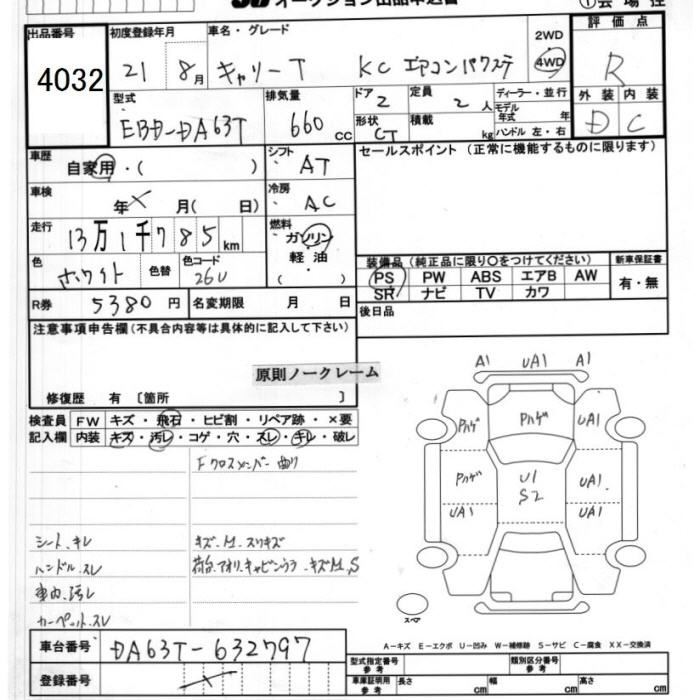 オークション出品申込書
①会場
出品番号 4032
初度登録年月 21 8月
車名・グレード キャリーT KC エアコンパワステ
2WD 4WD
評価点 R
外装 D 内装 C
型式 EBD-DA63T
排気量 660 cc
ドア 2
定員 2人
ディーラー・並行
モデル年式 年
形状 CT
積載 kg
ハンドル 左・右
車歴 自家用・( )
シフト AT
セールスポイント (正常に機能するものに限ります)
車検 年 × 月( 日)
冷房 AC
走行 13万1千785km
燃料 ガソリン 軽油 ( )
色 ホワイト 色替
色コード 26U
装備品 (純正品に限り○をつけてください)
新車保証書 有・無
PS PW ABS エアB AW
SR ナビ TV カワ
R券 5380円
名変期限 月 日
後日品
注意事項申告欄 (不具合内容等は具体的に記入して下さい)
原則ノークレーム
修復歴 有 〔箇所 〕
検査員記入欄
FW キズ・飛石・ヒビ割・リペア跡・×要
内装 キズ・汚レ・コゲ・穴・スレ・キレ・破レ
Fクロスメンバー曲り
シート、キレ
ハンドル、スレ
車内、汚レ
カーペット、スレ
キズ、M、スリキズ
荷台、アオリ、キャビンウラ、キズM、S
A1 UA1 A1
Pハゲ Pハゲ UA1
Pハゲ U1 S2 UA1
UA1 UA1
スペア
A-キズ E-エクボ U-凹み W-補修跡 S-サビ C-腐食 XX-交換済
車台番号 DA63T-632797
登録番号 ×
型式指定番号 参考
類別区分番号 参考
車庫証明用 参考 長さ cm 幅 cm 高さ cm